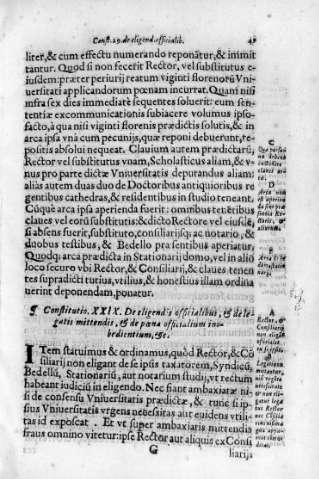 Const. 29. de eligend. officialib. 49
liter, & cum effectu numerando reponātur, & inimit
tantur. Quod si non fecerit Rector, vel substitutus e-
iusdem: præter periurij reatum viginti florenorū Vni-
uersitati applicandorum pœnam incurrat. Quam nisi
infra sex dies immediatè sequentes soluerit: eum sen-
tentiæ excommunicationis subiacere volumus ipso-
facto, à qua nisi viginti florenis prædictis solutis, & in
arca ipsa vnà cum pecunijs, quæ reponi debuerunt, re-
positis absolui nequeat. Clauium autem prædictarū,
Rector vel substitutus vnam, Scholasticus aliam, & v-
nus pro parte dictæ Vniuersitatis deputandus aliam:
aliàs autem duas duo de Doctoribus antiquioribus re
gentibus cathedras, & residentibus in studio teneant.
Cùquè arca ipsa aperienda fuerit: omnibus tenētibus
claues vel eorū substitutis: & dicto Rectore vel eiusdē,
si absens fuerit, substituto, consiliarijsq; ac notario, &
duobus testibus, & Bedello præsentibus aperiatur,
Quodq; arca prædicta in Stationarij domo, vel in alio
loco securo vbi Rector, & Consiliarij, & claues tenen
tes supradicti tutius, vtilius, & honestius illam ordina
uerint deponendam, ponatur.
¶ Constitutio. XXIX. De eligendis officialibus, & dele
gatis mittendis, & de pœna officialium ino-
bedientium, &c.
ITem statuimus & ordinamus, quòd Rector, & Cō
siliarij non eligant de se ipsis taxatorem, Syndicū,
Bedellū, Stationariū, aut notarium studij, vt rectum
habeant iudiciū in eligendo. Nec fiant ambaxiatæ ni-
si de consensu Vniuersitatis prædictæ, & tunc si ip-
sius Vniuersitatis vrgens necessitas aut euidens vtili-
tas id exposcat. Et vt super ambaxiaris mittendis
fraus omnino vitetur: ipse Rector aut aliquis ex Consi
G
liarijs
C
D
E
A